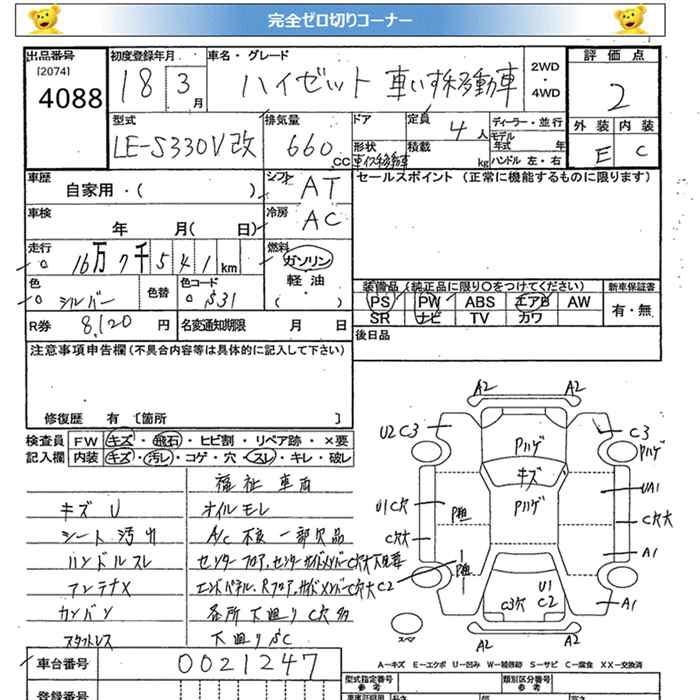 完全ゼロ切りコーナー
出品番号
[2074]
4088
初度登録年月
18 3月
車名・グレード
ハイゼット 車いす移動車
2WD
・
4WD
評価点
2
外装 内装
E C
型式
LE-S330V改
排気量
660 CC
ドア
形状
車イス移動車
定員
4人
積載
kg
ディーラー・並行
モデル
年式 年
ハンドル 左・右
車歴
自家用・( )
シフト
AT
車検
年 月( 日)
冷房
AC
セールスポイント (正常に機能するものに限ります)
走行
16万7千541km
燃料
ガソリン
軽油
( )
色
シルバー
色替
色コード
S31
R券 8,120円
名変通知期限 月 日
装備品(純正品に限り○をつけてください)
PS PW ABS エアB AW
SR ナビ TV カワ
新車保証書
有・無
後日品
注意事項申告欄(不具合内容等は具体的に記入して下さい)
修復歴 有 〔箇所 〕
検査員
記入欄
FW キズ・飛石・ヒビ割・リペア跡・×要
内装 キズ・汚レ・コゲ・穴・スレ・キレ・破レ
福祉車両
キズ U
オイルモレ
シート汚れ
A/C不良 一部欠品
ハンドルスレ
アンテナX
カンバン
各所下廻りC穴多
スタットレス
下廻りSC
A2 A2
U2 C3
Pハゲ
C3
Pハゲ
キズ
UA1
U1 C穴
Pハゲ
C穴大
C穴大
A1
C3穴
U1
C2
A1
スペア
A2 A2
A－キズ E－エクボ U－凹み W－補修跡 S－サビ C－腐食 XX－交換済
車台番号
0021247
型式指定番号
参考
類別区分番号
参考
登録番号
長さ